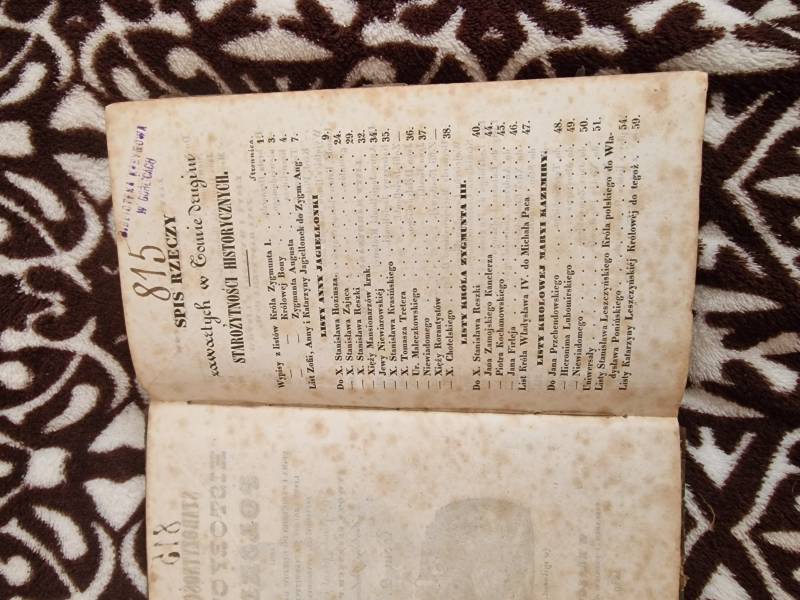 815
BIBLIOTEKA
W GORLICACH
SPIS RZECZY
zawartych w Tomie drugim
STAROŻYTNOŚCI HISTORYCZNYCH.
Stronnica.
Wypisy z listów Króla Zygmunta I. 1.
— — Królowej Bony 3.
— — Zygmunta Augusta 4.
List Zofii, Anny i Katarzyny Jagiellonek do Zygm. Aug. 7.
LISTY ANNY JAGIELLONKI 9.
Do X. Stanisława Hozinsza. 24.
— X. Stanisława Zająca 29.
— X. Stanisława Reszki 32.
— Xięży Mansionarzów krak. 34.
— Jewy Niewiarowskiéj 35.
— X. Stanisława Krasińskiego —
— X. Tomasza Tretera 36.
— Ur. Maleczkowskiego 37.
— Niewiadomego —
— Xięży Rorantystów 38.
— X. Chotelskiego
LISTY KRÓLA ZYGMUNTA III.
Do X. Stanisława Reszki 40.
— Jana Zamojskiego Kanclerza 44.
— Piotra Kochanowskiego 45.
— Jana Firleja 46.
List Króla Władysława IV. do Michała Paca 47.
LISTY KRÓLOWEJ MARYI KAZIMIRY.
Do Jana Przebendowskiego 48.
— Hieronima Lubomirskiego 49.
— Niewiadomego 50.
Uniwersały 51.
Listy Stanisława Leszczyńskiego Króla polskiego do Wła-
dysława Ponińskiego 54.
Listy Katarzyny Leszczyńskiéj Królowéj do tegoż 59.